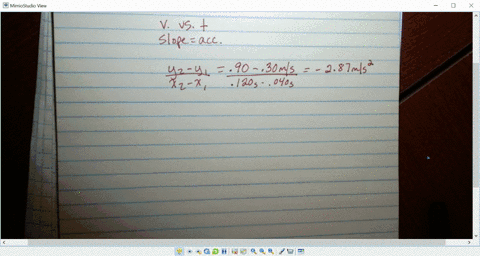 MimioStudio View
v. vs. t
slope = acc.
y₂ - y₁ / x₂ - x₁ = .90 - .30 m/s / .120s - .040s = - 2.87 m/s²